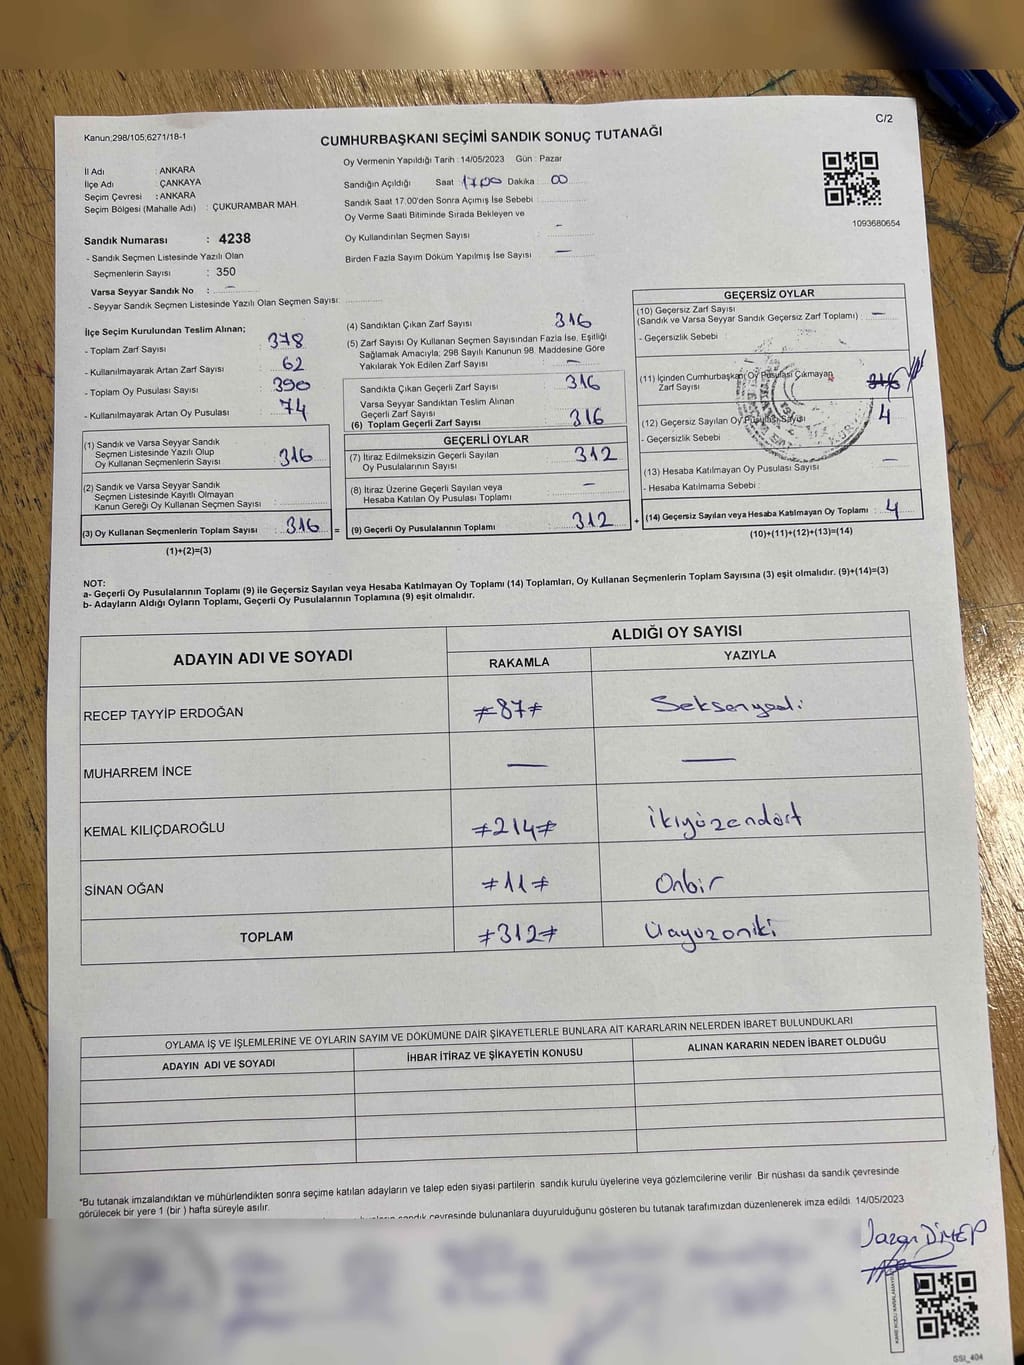 Kanun;298/105,6271/18-1
C/2
CUMHURBAŞKANI SEÇİMİ SANDIK SONUÇ TUTANAĞI
Oy Vermenin Yapıldığı Tarih : 14/05/2023 Gün : Pazar
İl Adı : ANKARA
İlçe Adı : ÇANKAYA
Seçim Çevresi : ANKARA
Seçim Bölgesi (Mahalle Adı) : ÇUKURAMBAR MAH.
Sandığın Açıldığı Saat 17.00 Dakika : 00
Sandık Saat 17.00'den Sonra Açımış İse Sebebi :
Oy Verme Saati Bitiminde Sırada Bekleyen ve
Oy Kullandırılan Seçmen Sayısı : -
Birden Fazla Sayım Döküm Yapılmış İse Sayısı : -
1093680654
Sandık Numarası : 4238
- Sandık Seçmen Listesinde Yazılı Olan
Seçmenlerin Sayısı : 350
Varsa Seyyar Sandık No : -
- Seyyar Sandık Seçmen Listesinde Yazılı Olan Seçmen Sayısı:
İlçe Seçim Kurulundan Teslim Alınan;
- Toplam Zarf Sayısı : 378
- Kullanılmayarak Artan Zarf Sayısı : 62
- Toplam Oy Pusulası Sayısı : 390
- Kullanılmayarak Artan Oy Pusulası : 74
(1) Sandık ve Varsa Seyyar Sandık
Seçmen Listesinde Yazılı Olup
Oy Kullanan Seçmenlerin Sayısı : 316
(2) Sandık ve Varsa Seyyar Sandık
Seçmen Listesinde Kayıtlı Olmayan
Kanun Gereği Oy Kullanan Seçmen Sayısı :
(3) Oy Kullanan Seçmenlerin Toplam Sayısı : 316 =
(1)+(2)=(3)
(4) Sandıktan Çıkan Zarf Sayısı : 316
(5) Zarf Sayısı Oy Kullanan Seçmen Sayısından Fazla İse, Eşitliği
Sağlamak Amacıyla; 298 Sayılı Kanunun 98. Maddesine Göre
Yakılarak Yok Edilen Zarf Sayısı : -
Sandıkta Çıkan Geçerli Zarf Sayısı : 316
Varsa Seyyar Sandıktan Teslim Alınan
Geçerli Zarf Sayısı :
(6) Toplam Geçerli Zarf Sayısı : 316
GEÇERLİ OYLAR
(7) İtiraz Edilmeksizin Geçerli Sayılan
Oy Pusulalarının Sayısı : 312
(8) İtiraz Üzerine Geçerli Sayılan veya
Hesaba Katılan Oy Pusulası Toplamı : -
(9) Geçerli Oy Pusulalarının Toplamı : 312 +
GEÇERSİZ OYLAR
(10) Geçersiz Zarf Sayısı
(Sandık ve Varsa Seyyar Sandık Geçersiz Zarf Toplamı) : -
- Geçersizlik Sebebi :
(11) İçinden Cumhurbaşkanı Oy Pusulası Çıkmayan
Zarf Sayısı : 316
(12) Geçersiz Sayılan Oy Pusulası Sayısı : 4
- Geçersizlik Sebebi :
(13) Hesaba Katılmayan Oy Pusulası Sayısı : -
- Hesaba Katılmama Sebebi :
(14) Geçersiz Sayılan veya Hesaba Katılmayan Oy Toplamı : 4
(10)+(11)+(12)+(13)=(14)
NOT:
a- Geçerli Oy Pusulalarının Toplamı (9) ile Geçersiz Sayılan veya Hesaba Katılmayan Oy Toplamı (14) Toplamları, Oy Kullanan Seçmenlerin Toplam Sayısına (3) eşit olmalıdır. (9)+(14)=(3)
b- Adayların Aldığı Oyların Toplamı, Geçerli Oy Pusulalarının Toplamına (9) eşit olmalıdır.
ADAYIN ADI VE SOYADI
ALDIĞI OY SAYISI
RAKAMLA YAZIYLA
RECEP TAYYİP ERDOĞAN ≠87≠ Seksenyedi
MUHARREM İNCE — —
KEMAL KILIÇDAROĞLU ≠214≠ ikiyüzondört
SİNAN OĞAN ≠11≠ Onbir
TOPLAM ≠312≠ Üçyüzoniki
OYLAMA İŞ VE İŞLEMLERİNE VE OYLARIN SAYIM VE DÖKÜMÜNE DAİR ŞİKAYETLERLE BUNLARA AİT KARARLARIN NELERDEN İBARET BULUNDUKLARI
ADAYIN ADI VE SOYADI İHBAR İTİRAZ VE ŞİKAYETİN KONUSU ALINAN KARARIN NEDEN İBARET OLDUĞU
*Bu tutanak imzalandıktan ve mühürlendikten sonra seçime katılan adayların ve talep eden siyasi partilerin sandık kurulu üyelerine veya gözlemcilerine verilir. Bir nüshası da sandık çevresinde
görülecek bir yere 1 (bir ) hafta süreyle asılır.
sandık çevresinde bulunanlara duyurulduğunu gösteren bu tutanak tarafımızdan düzenlenerek imza edildi. 14/05/2023
GSI_404